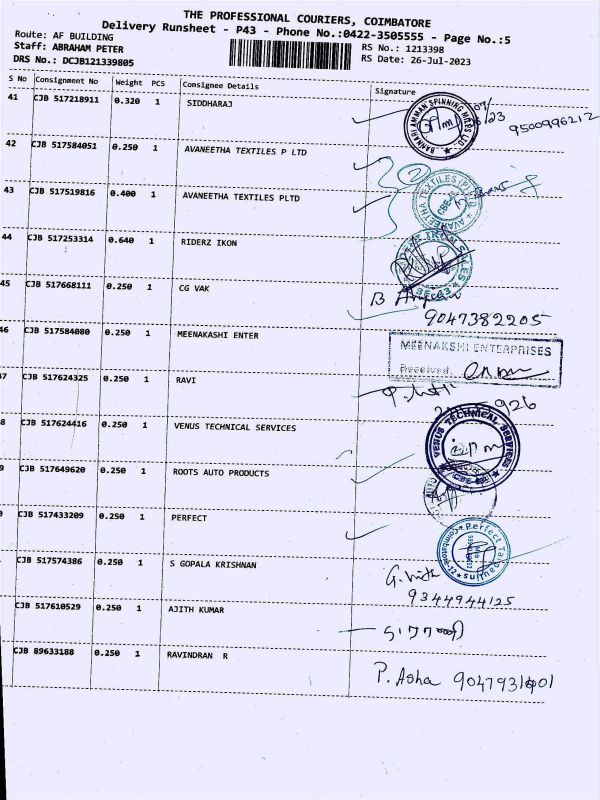 THE PROFESSIONAL COURIERS, COIMBATORE
Delivery Runsheet - P43 - Phone No.:0422-3505555 - Page No.:5
Route: AF BUILDING
Staff: ABRAHAM PETER
RS No.: 1213398
DRS No.: DCJB121339805
RS Date: 26-Jul-2023
S No Consignment No Weight PCS Consignee Details Signature
41 CJB 517218911 0.320 1 SIDDHARAJ
BANNARI AMMAN SPINNING MILLS
9500996212
42 CJB 517584051 0.250 1 AVANEETHA TEXTILES P LTD
43 CJB 517519816 0.400 1 AVANEETHA TEXTILES PLTD
AVANEETHA TEXTILES (P) LTD
44 CJB 517253314 0.640 1 RIDERZ IKON
IKON SALES
45 CJB 517668111 0.250 1 CG VAK
9047382205
46 CJB 517584080 0.250 1 MEENAKASHI ENTER
MEENAKSHI ENTERPRISES
Received
7 CJB 517624325 0.250 1 RAVI
926
8 CJB 517624416 0.250 1 VENUS TECHNICAL SERVICES
VENUS TECHNICAL SERVICES
9 CJB 517649620 0.250 1 ROOTS AUTO PRODUCTS
AUTO
CJB 517433209 0.250 1 PERFECT
Perfect Tarpaulins
CJB 517574386 0.250 1 S GOPALA KRISHNAN
9344944125
CJB 517610529 0.250 1 AJITH KUMAR
CJB 89633188 0.250 1 RAVINDRAN R
P. Asha